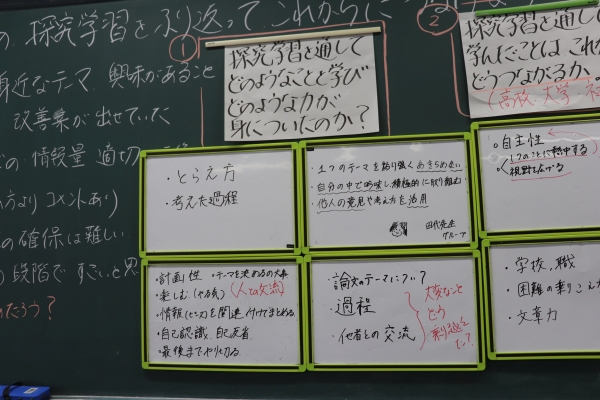 探究学習をふり返って、これからに
身近なテーマ、興味があること
改善案が出せていた
情報量 適切
コメントあり
の確保は難しい
段階で すごいと思
だろう？
①
探究学習を通して
どのようなことを学び
どのような力が
身についたのか？
②
探究学習を通して
学んだことは これか
どうつながるか。
(高校、大学 社
・とらえ方
・考えた過程
・1つのテーマを粘り強く あきらめない
・自分の中で吟味し、積極的に取り組む
・他人の意見や考え方を活用
田代先生
グループ
・自主性
・1つのことに熱中する
視野を広げる
・計画性 ・テーマを決めるの大事
・楽しむ (やる気) (人との交流)
・情報(ピース)を関連付けてまとめる
・自己認識、自己反省
・最後までやり切る
・論文のテーマについて？
・過程
・他者との交流
大変なこと
どう
乗り越えた？
・学校、職
・困難の乗りこえ方
・文章力